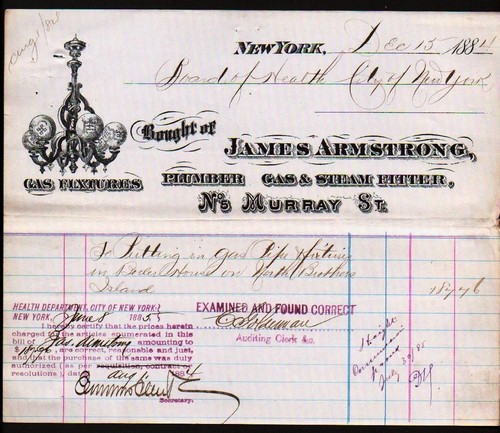 Aug 1/84
NEW YORK, Dec 15 1884
Board of Health City of New York
Bought of
JAMES ARMSTRONG,
GAS FIXTURES
PLUMBER GAS & STEAM FITTER,
No 5 MURRAY ST.
To Putting in Gas Pipe
in House on North Brothers
Island
HEALTH DEPARTMENT, CITY OF NEW YORK.
NEW YORK, June 8 1885
I hereby certify that the prices herein
charged for the articles enumerated in this
bill of Jas. Armstrong amounting to
$ , are correct, reasonable and just,
and that the purchase of the same was duly
authorized (as per requisition, contract or
resolutions), dated Aug 1 1884
Secretary.
EXAMINED AND FOUND CORRECT
Auditing Clerk &c.
July